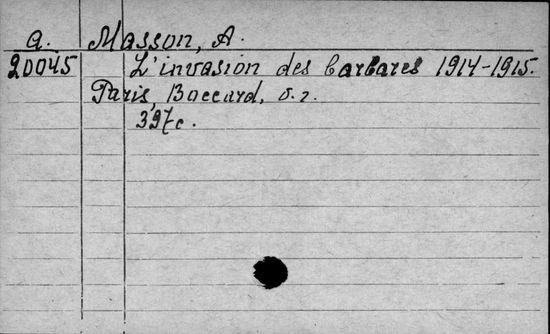 a. Masson, A.
20045 L'invasion des barbares 1914-1915.
Paris, Boccard, s. г.
397с.